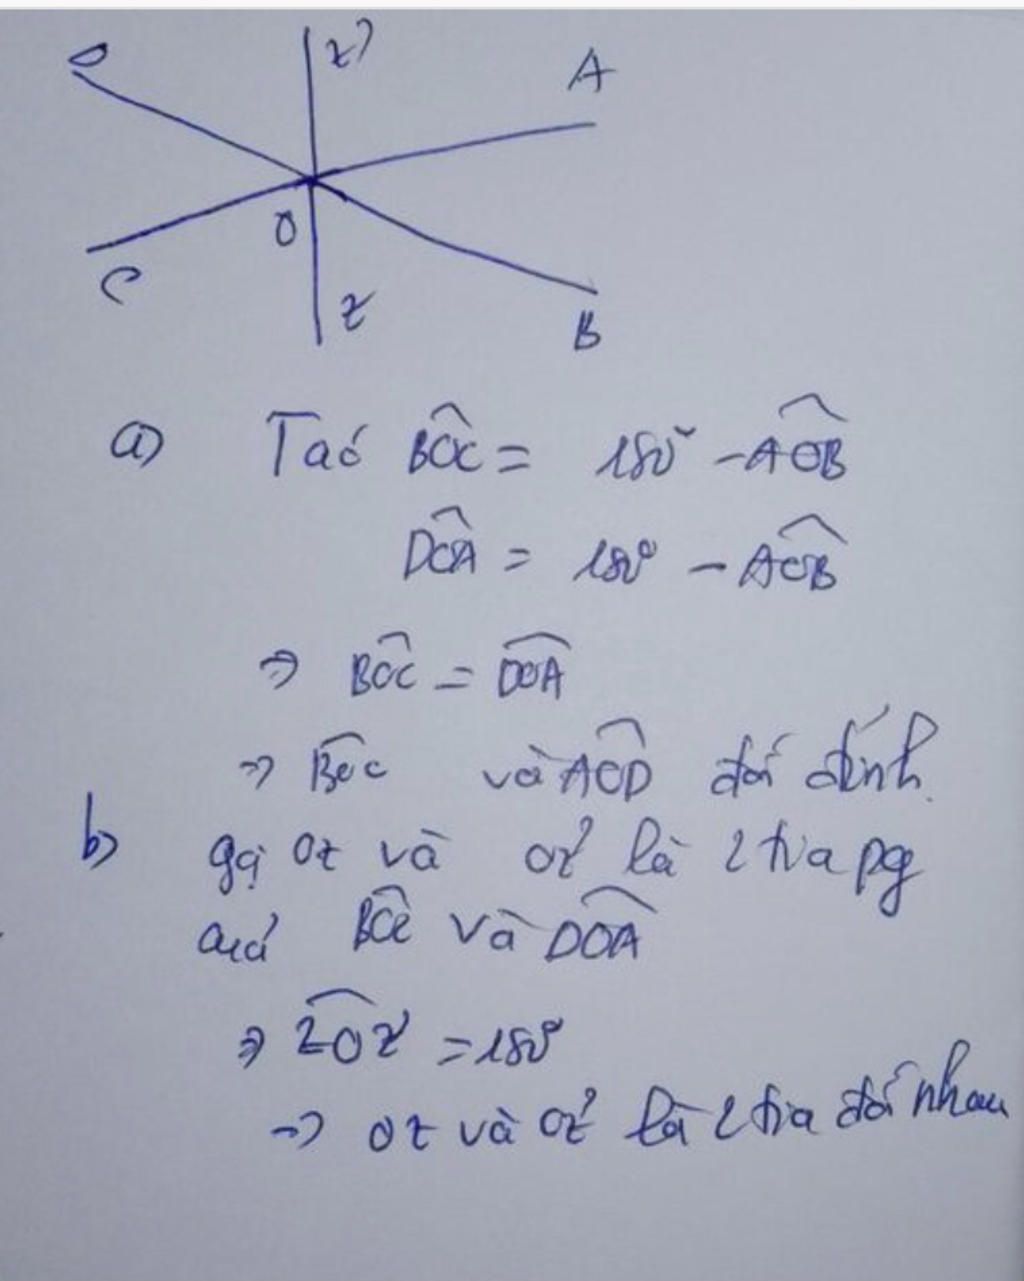 D
z'
A
O
C
z
B
a) Ta có BÔC = 180° - AÔB
DÔA = 180° - AÔB
⇒ BÔC = DÔA
⇒ BÔC và AÔD đối đỉnh.
b) gọi Oz và Oz' là 2 tia pg
của BÔC và DÔA
⇒ zÔz' = 180°
→ Oz và Oz' là 2 tia đối nhau